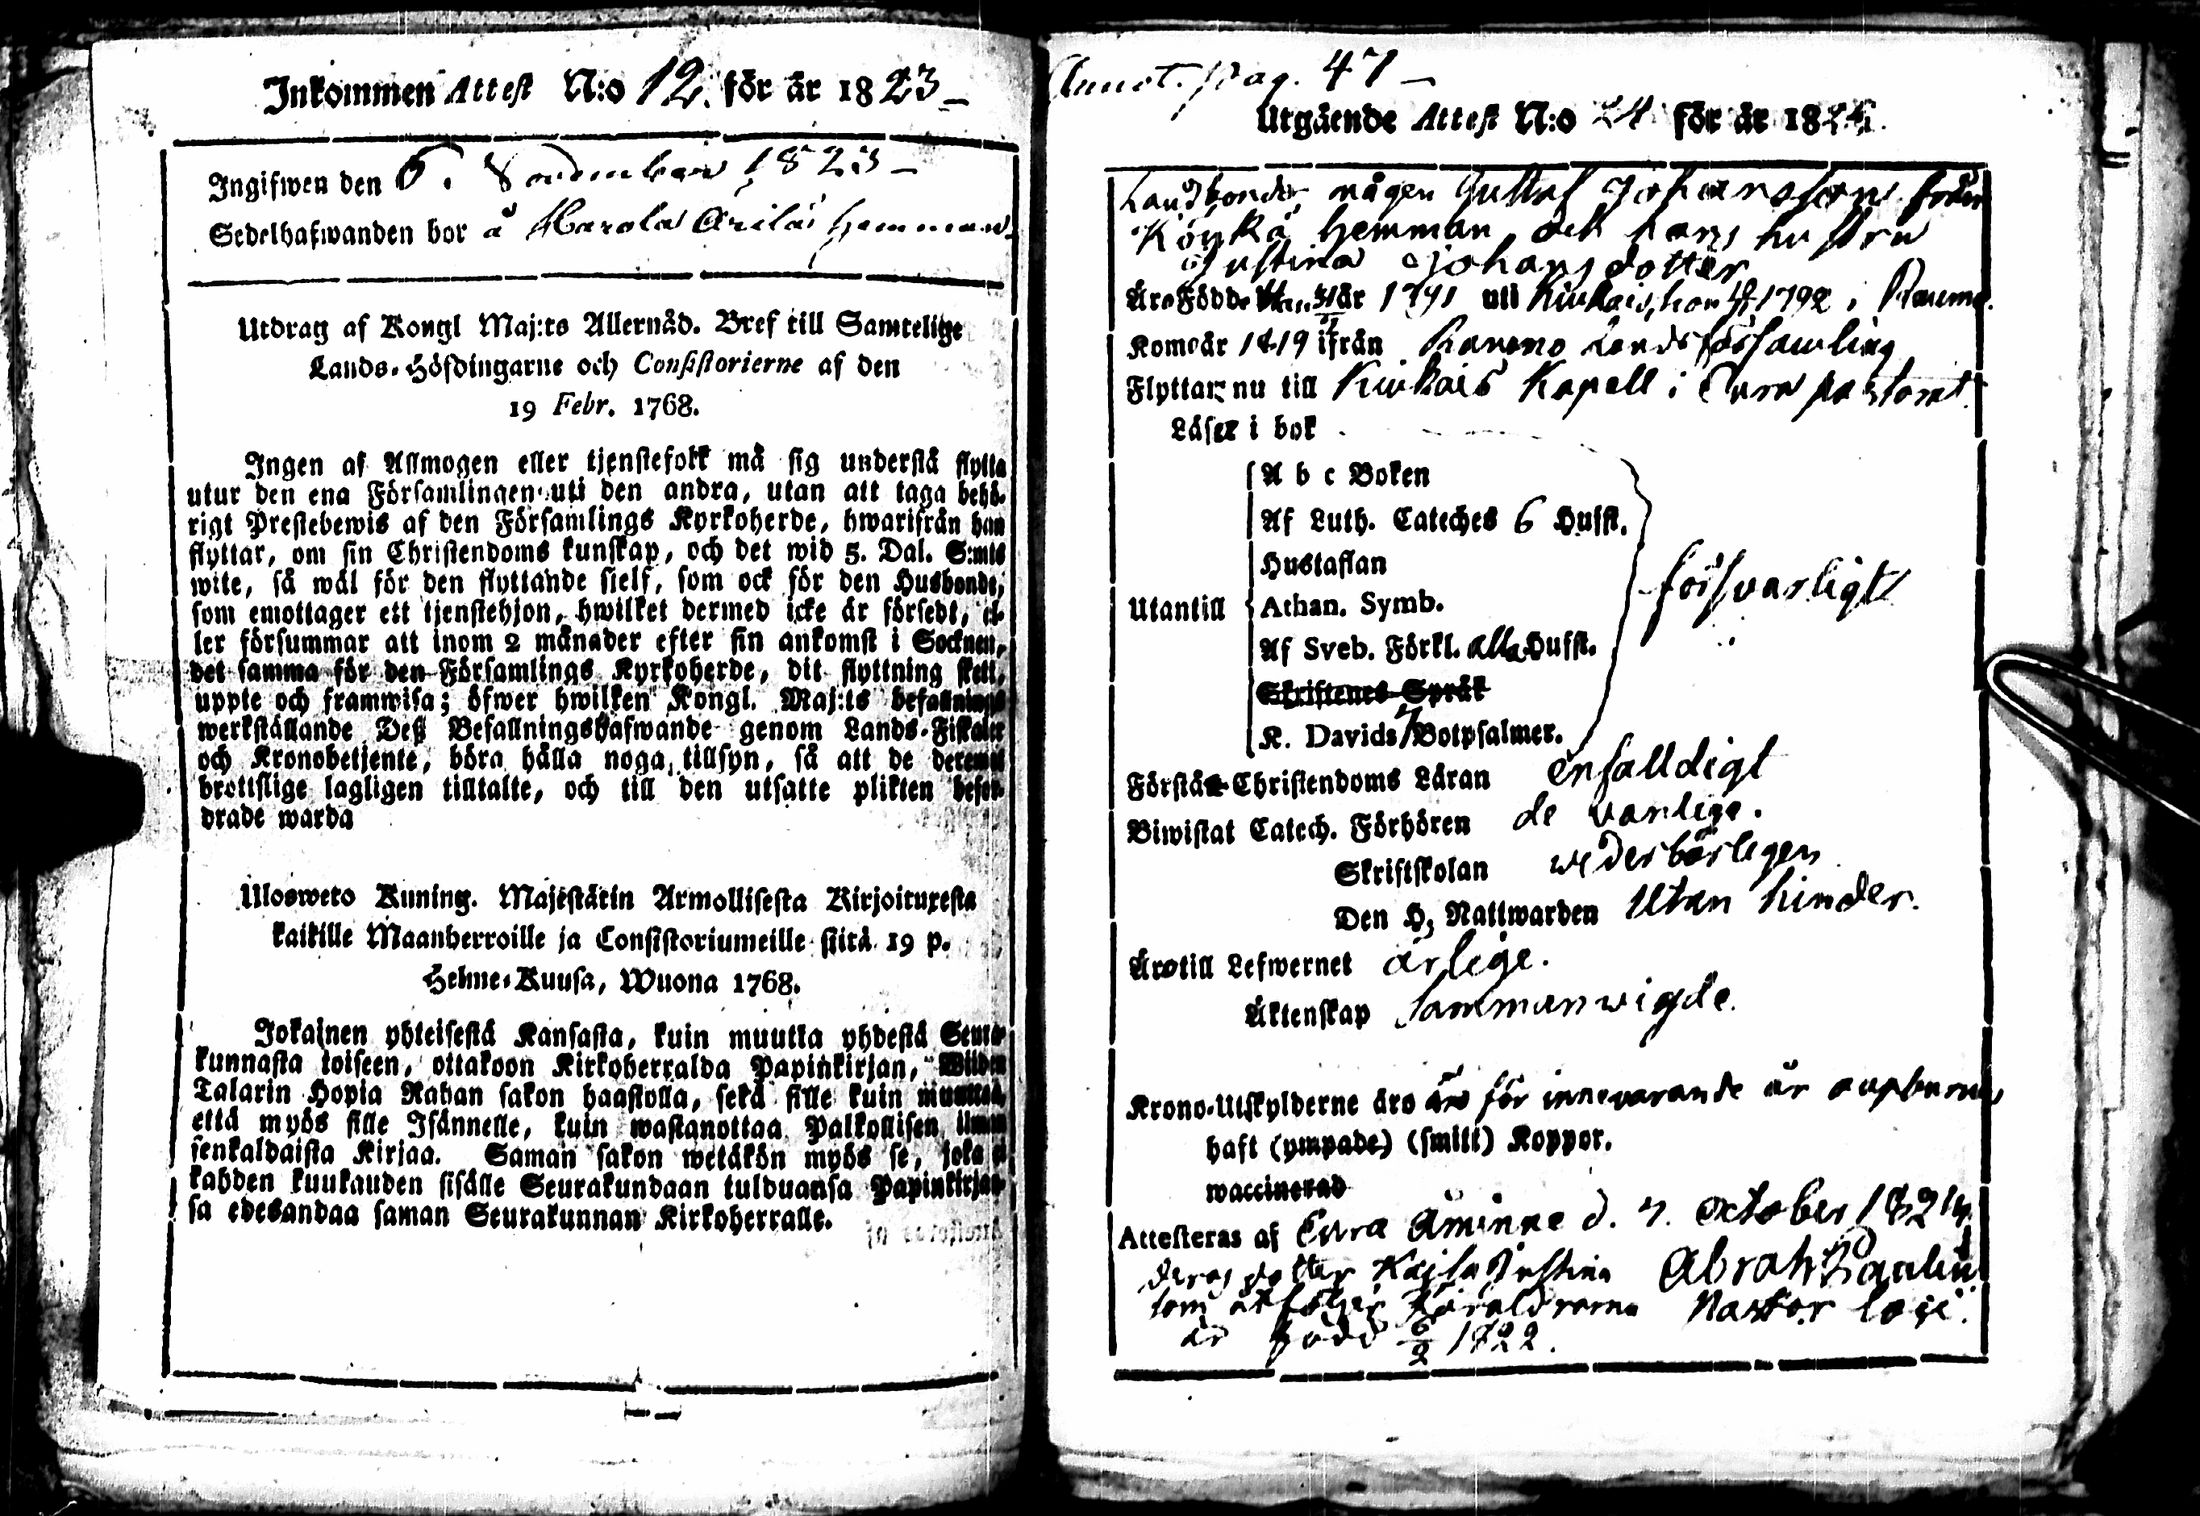 Inkommen Attest N:o 12. för år 1823 –
Ingifwen den 6. November 1823 –
Sedelhafwanden bor å Karola Arila hemman.
Utdrag af Kongl Maj:ts Allernåd. Bref till Samtelige
Lands-Höfdingarne och Consistorierne af den
19 Febr. 1768.
Ingen af Allmogen eller tjenstefolk må sig understå flytta
utur den ena Församlingen uti den andra, utan att taga behö-
rigt Prestebewis af den Församlings Kyrkoherde, hwarifrån han
flyttar, om sin Christendoms kunskap, och det wid 5. Dal. S:mts
wite, så wäl för den flyttande sielf, som ock för den Husbonde,
som emottager ett tjenstehjon, hwilket dermed icke är försedt, el-
ler försummar att inom 2 månader efter sin ankomst i Socknen,
det samma för den Församlings Kyrkoherde, dit flyttning skett,
uppte och framwisa; öfwer hwilken Kongl. Maj:ts befallnings
werkställande Deß Befallningshafwande genom Lands-Fiskaler
och Kronobetjente, böra hålla noga tillsyn, så att de deremot
brottslige lagligen tilltalte, och till den utsatte plikten befor-
drade warda
Ulosweto Kuning. Majestätin Armollisesta Kirjoituxesta
kaikille Maanherroille ja Consistoriumeille siitä 19 p.
Helme-Kuusa, Wuona 1768.
Jokainen yhteisestä Kansasta, kuin muutta yhdestä Seura-
kunnasta toiseen, ottakoon Kirkoherralda Papinkirjan, Wiiden
Talarin Hopia Rahan sakon haastolla, sekä sille kuin muuttaa,
että myös sille Isännelle, kuin wastanottaa Palkollisen ilman
senkaldaista Kirjaa. Saman sakon wetäkön myös se, joka ei
kahden kuukauden sisälle Seurakundaan tulduansa Papinkirjan-
sa edesandaa saman Seurakunnan Kirkoherralle.
Annot. Pag. 47 –
Utgående Attest N:o 24 för år 1824.
Landbonde mågen Gustaf Johansson från
Köykä hemman och hans hustru
Justina Johansdotter
Äro Födde Han år 1791 uti Kiukais, hon 1792 i Raumo.
Kom år 1819 ifrån Raumo Landsförsamling
Flyttar nu till Kiukais Kapell i Eura pastorat.
Läser i bok
A b c Boken
Af Luth. Cateches 6 Hufst.
Hustaflan
Utantill Athan. Symb.
försvarligt
Af Sveb. Förkl. alla Hufst.
Skriftenes Språk
K. Davids 7 Botpsalmer.
Förstår Christendoms Läran enfalldigt
Biwistat Catech. Förhören de vanlige.
Skriftskolan wederbörligen
Den H. Nattwarden Utan hinder.
Äro till Lefwernet ärlige.
Äktenskap Sammanwigde.
Krono-Utskylderne äro för innevarande år oupburne
haft (ympade) (smitt) Koppor.
waccinerad
Attesteras af Eura Åminne d. 7. October 1824.
deras dotter Kajsa Justina
som åtföljer Föräldrarna Pastor loci.
är född 6/2 1822.